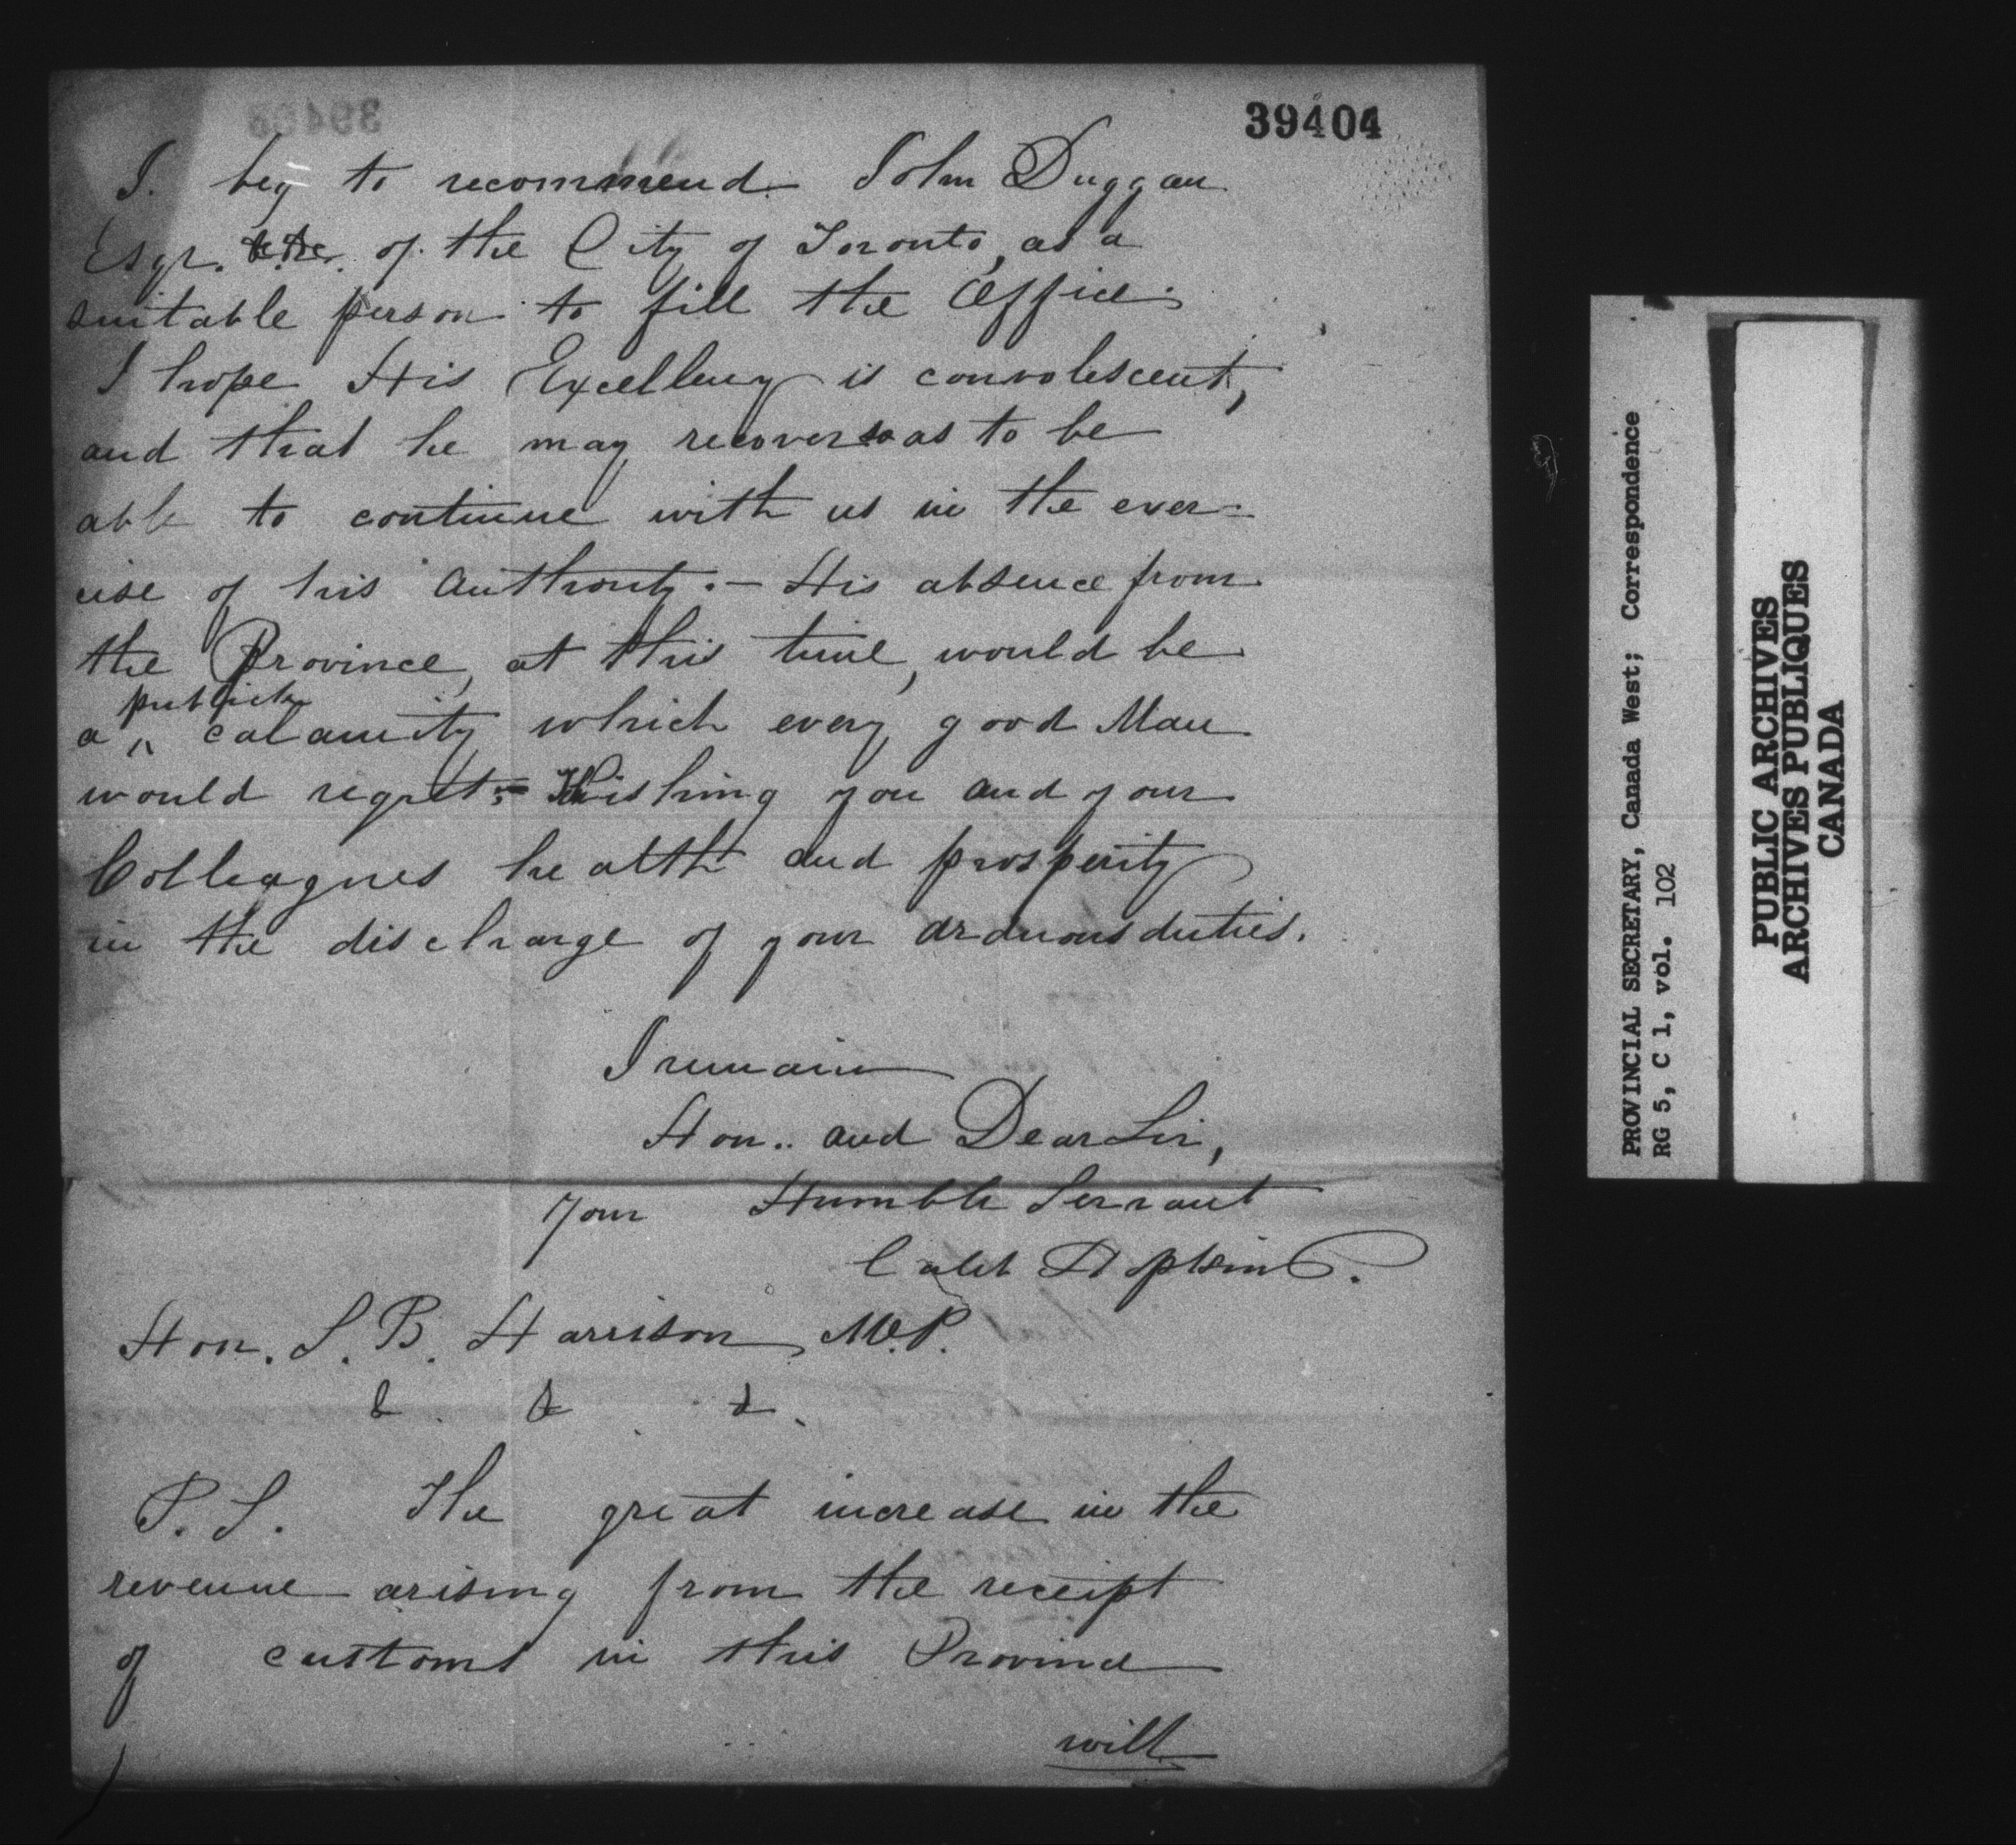 39404
I. beg to recommend John Duggan
Esqr. &c &c. of the City of Toronto, as a
suitable person to fill the Office.
I hope His Excellency is convolescent,
and that he may recover so as to be
able to continue with us in the exer=
cise of his Authority. - His absence from
the Province, at this time, would be
publick
a ^ calamity which every good Man
would regret;- Wishing you and your
Colleagues health and prosperity
in the discharge of your arduous duties.
I remain
Hon.. and Dear Sir,
Your Humble Servant
Caleb Hopkins.
Hon. S. B. Harrison, M.P.
& & &.
P.S. The great increase in the
revenue arising from the receipt
of customs in this Province
will
PROVINCIAL SECRETARY, Canada West; Correspondence
RG 5, C 1, vol. 102
PUBLIC ARCHIVES
ARCHIVES PUBLIQUES
CANADA